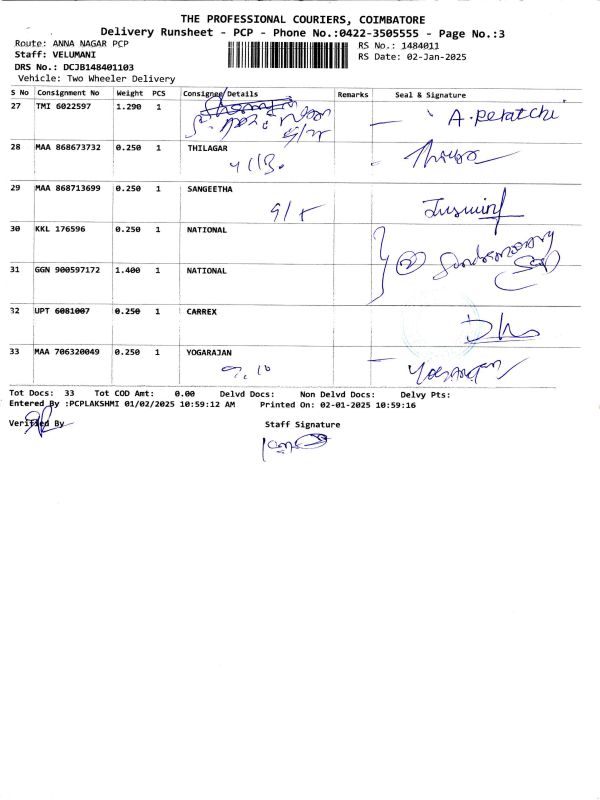 THE PROFESSIONAL COURIERS, COIMBATORE
Delivery Runsheet - PCP - Phone No.:0422-3505555 - Page No.:3
Route: ANNA NAGAR PCP
RS No.: 1484011
Staff: VELUMANI
RS Date: 02-Jan-2025
DRS No.: DCJB148401103
Vehicle: Two Wheeler Delivery
S No Consignment No Weight PCS Consignee/Details Remarks Seal & Signature
27 TMI 6022597 1.290 1 A.peratchi
28 MAA 868673732 0.250 1 THILAGAR
29 MAA 868713699 0.250 1 SANGEETHA
30 KKL 176596 0.250 1 NATIONAL
31 GGN 900597172 1.400 1 NATIONAL
32 UPT 6081007 0.250 1 CARREX
33 MAA 706320049 0.250 1 YOGARAJAN
Tot Docs: 33 Tot COD Amt: 0.00 Delvd Docs: Non Delvd Docs: Delvy Pts:
Entered By :PCPLAKSHMI 01/02/2025 10:59:12 AM Printed On: 02-01-2025 10:59:16
Verified By Staff Signature